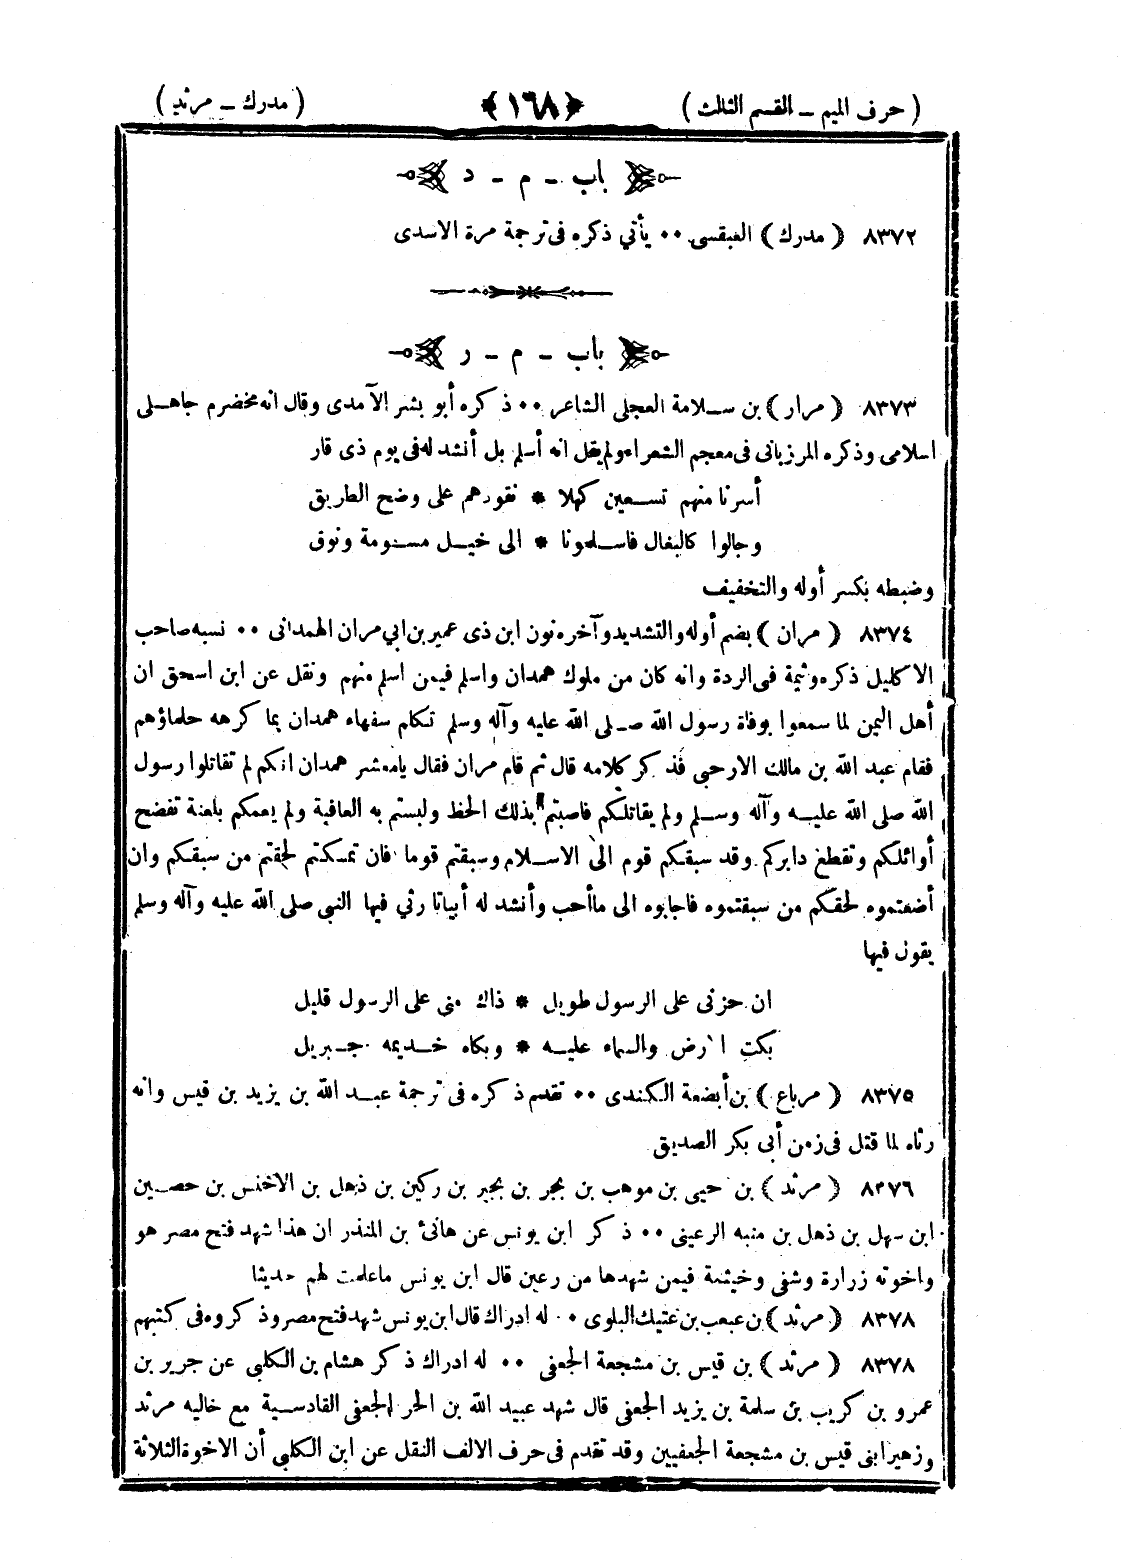 ( حرف الميم ــ القسم الثالث ) ﴿١٦٨﴾ ( مدرك ــ مرثد )
باب ـ م ـ د
٨٣٧٢ ( مدرك ) العبقسى ٠٠ يأتي ذكره فى ترجمة مرة الاسدى
باب ـ م ـ ر
٨٣٧٣ ( مرار ) بن سلامة العجلى الشاعر ٠٠ ذكره أبو بشر الآمدى وقال انه مخضرم جاهلى
اسلامى وذكره المرزبانى فى معجم الشعراء ولم يقل انه أسلم بل أنشد له فى يوم ذى قار
أسرنا منهم تسعين كهلا * نقودهم على وضح الطريق
وجالوا كالبغال فاسلمونا * الى خيل مسومة ونوق
وضبطه بكسر أوله والتخفيف
٨٣٧٤ ( مران ) بضم أوله والتشديد وآخره نون ابن ذى عمير بن ابي مران الهمدانى ٠٠ نسبه صاحب
الاكليل ذكره وثيمة فى الردة وانه كان من ملوك همدان واسلم فيمن اسلم منهم ونقل عن ابن اسحق ان
أهل اليمن لما سمعوا بوفاة رسول الله صلى الله عليه وآله وسلم تكلم سفهاء همدان بما كرهه حلماؤهم
فقام عبد الله بن مالك الارحبى فذكر كلامه قال ثم قام مران فقال يامعشر همدان انكم لم تقاتلوا رسول
الله صلى الله عليه وآله وسلم ولم يقاتلكم فاصبتم بذلك الحظ ولبستم به العافية ولم يعمكم بلعنة تفضح
أوائلكم وتقطع دابركم وقد سبقكم قوم الى الاسلام وسبقتم قوما فان تمسكتم لحقتم من سبقكم وان
أضعتموه لحقكم من سبقتموه فاجابوه الى ماأحب وأنشد له أبياتا رثي فيها النبى صلى الله عليه وآله وسلم
يقول فيها
ان حزنى على الرسول طويل * ذاك منى على الرسول قليل
بكت الارض والسماء عليه * وبكاه خديمه جبريل
٨٣٧٥ ( مرباع ) بن أبضعة الكندى ٠٠ تقدم ذكره فى ترجمة عبد الله بن يزيد بن قيس وانه
رثاه لما قتل فى زمن أبى بكر الصديق
٨٣٧٦ ( مرثد ) بن حيى بن موهب بن بجر بن بجير بن ركين بن ذهل بن الاخنس بن حصين
ابن سهل بن ذهل بن منبه الرعينى ٠٠ ذكر ابن يونس عن هانئ بن المنذر ان هذا شهد فتح مصر هو
واخوته زرارة وشفى وخيثمة فيمن شهدها من رعين قال ابن يونس ماعلمت لهم حديثا
٨٣٧٨ ( مرثد ) بن عبعب بن عتيك البلوى ٠٠ له ادراك قال ابن يونس شهد فتح مصر وذكروه فى كتبهم
٨٣٧٨ ( مرثد ) بن قيس بن مشجعة الجعفى ٠٠ له ادراك ذكر هشام بن الكلبى عن جرير بن
عمرو بن كريب بن سلمة بن يزيد الجعفى قال شهد عبيد الله بن الحر الجعفى القادسية مع خاليه مرثد
وزهير ابنى قيس بن مشجعة الجعفيين وقد تقدم فى حرف الالف النقل عن ابن الكلبى أن الاخوة الثلاثة